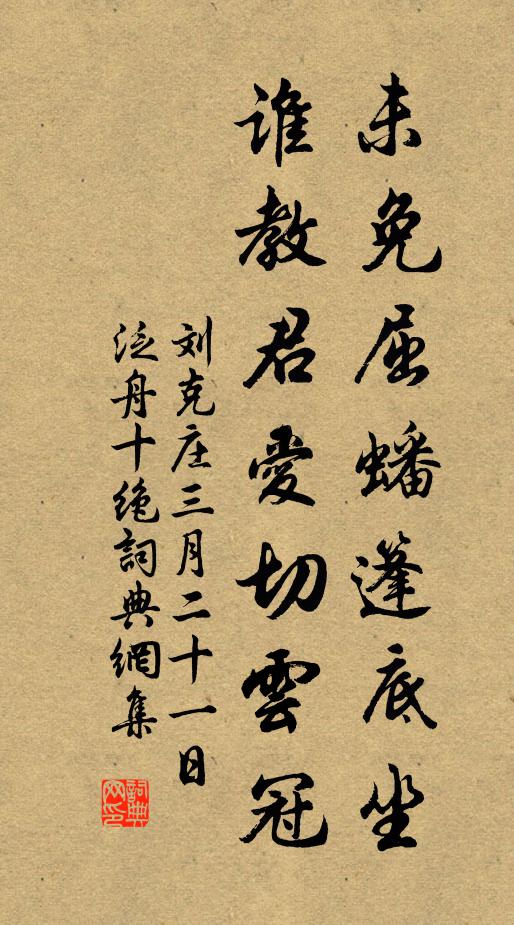 未免屈蟠篷底坐
谁教君愛切雲冠
刘克庄三月二十一日
泛舟十绝詞典網集
詞典
网印